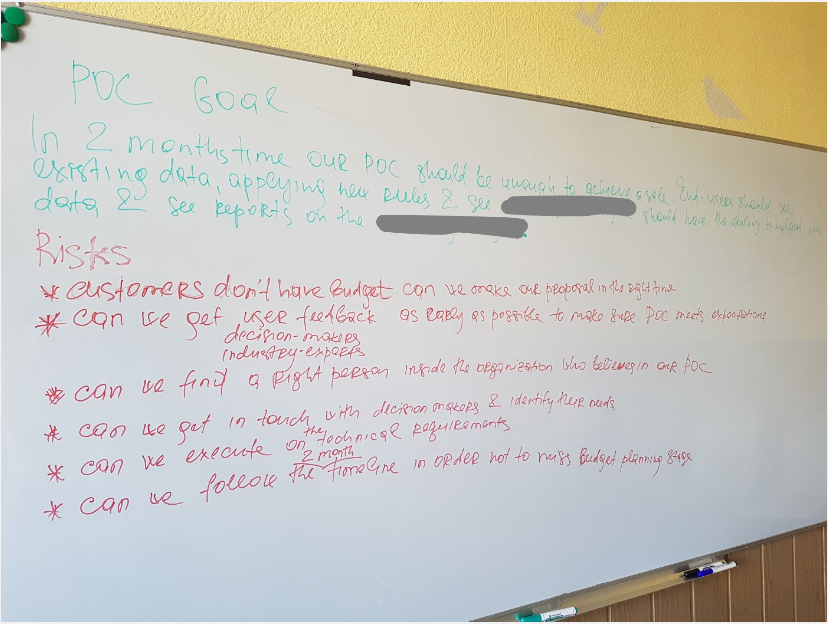 POC Goal
In 2 months time our POC should be enough to achieve a sale. End-users should see
existing data, applying new rules & see should have the ability to upload
data & see reports on the
Risks
* customers don't have Budget can we make our proposal in the right time
* can we get user feedback as early as possible to make sure POC meets expectations
decision-makers
industry-experts
* can we find a right person inside the organization who believes in our POC
* can we get in touch with decision makers & identify their needs
* can we execute on the technical requirements
* can we follow the 2 month timeline in order not to miss Budget planning stage